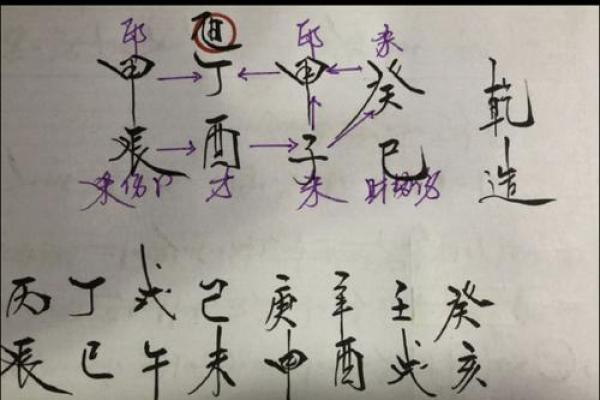 印 印 杀
甲 丁 甲 癸 乾
辰 酉 子 巳 造
杀伤卩 才 杀 财劫伤
丙 丁 戊 己 庚 辛 壬 癸
辰 巳 午 未 申 酉 戌 亥